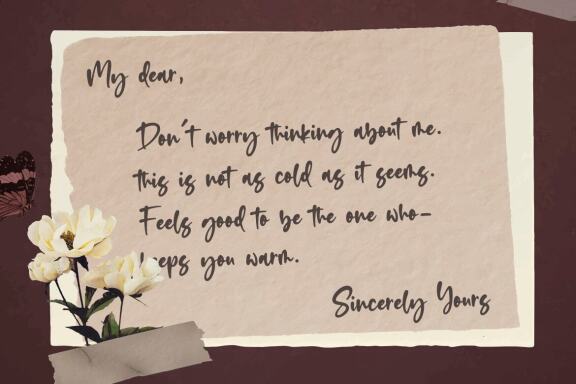 My dear,
Don't worry thinking about me.
this is not as cold as it seems.
Feels good to be the one who-
keeps you warm.
Sincerely Yours